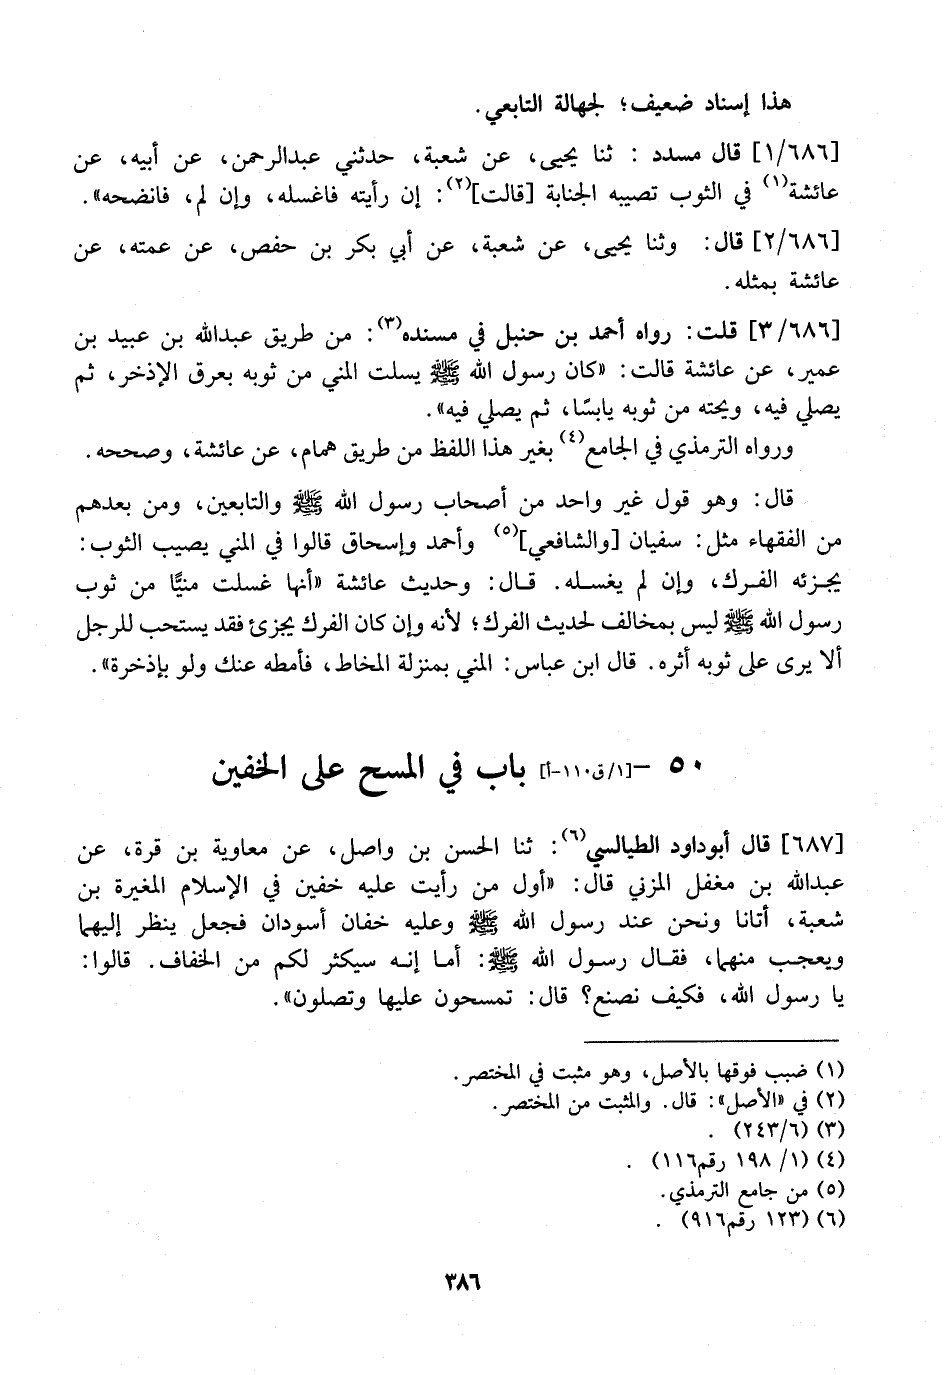 هذا إسناد ضعيف؛ لجهالة التابعي.
[١/٦٨٦] قال مسدد : ثنا يحيى، عن شعبة، حدثني عبدالرحمن، عن أبيه، عن
عائشة(١) في الثوب تصيبه الجنابة [قالت](٢): إن رأيته فاغسله، وإن لم، فانضحه».
[٢/٦٨٦] قال: وثنا يحيى، عن شعبة، عن أبي بكر بن حفص، عن عمته، عن
عائشة بمثله.
[٣/٦٨٦] قلت: رواه أحمد بن حنبل في مسنده(٣): من طريق عبدالله بن عبيد بن
عمير، عن عائشة قالت: «كان رسول الله ﷺ يسلت المني من ثوبه بعرق الإذخر، ثم
يصلي فيه، ويحته من ثوبه يابسًا، ثم يصلي فيه».
ورواه الترمذي في الجامع(٤) بغير هذا اللفظ من طريق همام، عن عائشة، وصححه.
قال: وهو قول غير واحد من أصحاب رسول الله ﷺ والتابعين، ومن بعدهم
من الفقهاء مثل: سفيان [والشافعي](٥) وأحمد وإسحاق قالوا في المني يصيب الثوب:
يجزئه الفرك، وإن لم يغسله. قال: وحديث عائشة «أنها غسلت منيًّا من ثوب
رسول الله ﷺ ليس بمخالف لحديث الفرك؛ لأنه وإن كان الفرك يجزئ فقد يستحب للرجل
ألا يرى على ثوبه أثره. قال ابن عباس: المني بمنزلة المخاط، فأمطه عنك ولو بإذخرة».
٥٠ –[١/ق١١٠-أ] باب في المسح على الخفين
[٦٨٧] قال أبوداود الطيالسي(٦): ثنا الحسن بن واصل، عن معاوية بن قرة، عن
عبدالله بن مغفل المزني قال: «أول من رأيت عليه خفين في الإسلام المغيرة بن
شعبة، أتانا ونحن عند رسول الله ﷺ وعليه خفان أسودان فجعل ينظر إليهما
ويعجب منهما، فقال رسول الله ﷺ: أما إنه سيكثر لكم من الخفاف. قالوا:
يا رسول الله، فكيف نصنع؟ قال: تمسحون عليها وتصلون».
(١) ضبب فوقها بالأصل، وهو مثبت في المختصر.
(٢) في «الأصل»: قال. والمثبت من المختصر.
(٣) (٢٤٣/٦) .
(٤) (١/ ١٩٨ رقم١١٦) .
(٥) من جامع الترمذي.
(٦) (١٢٣ رقم٩١٦) .
٣٨٦